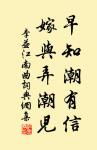 早知潮有信
嫁與弄潮兒
李益江南曲詞典網集